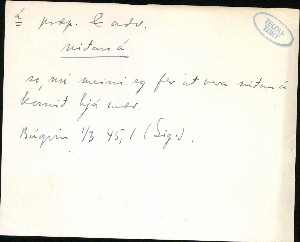 á præp. & adv.
nitaná
so, nú meini eg fer at vera nitaná
komið hjá mær
Búgvin 1/3 '45, 1 (Sig.).